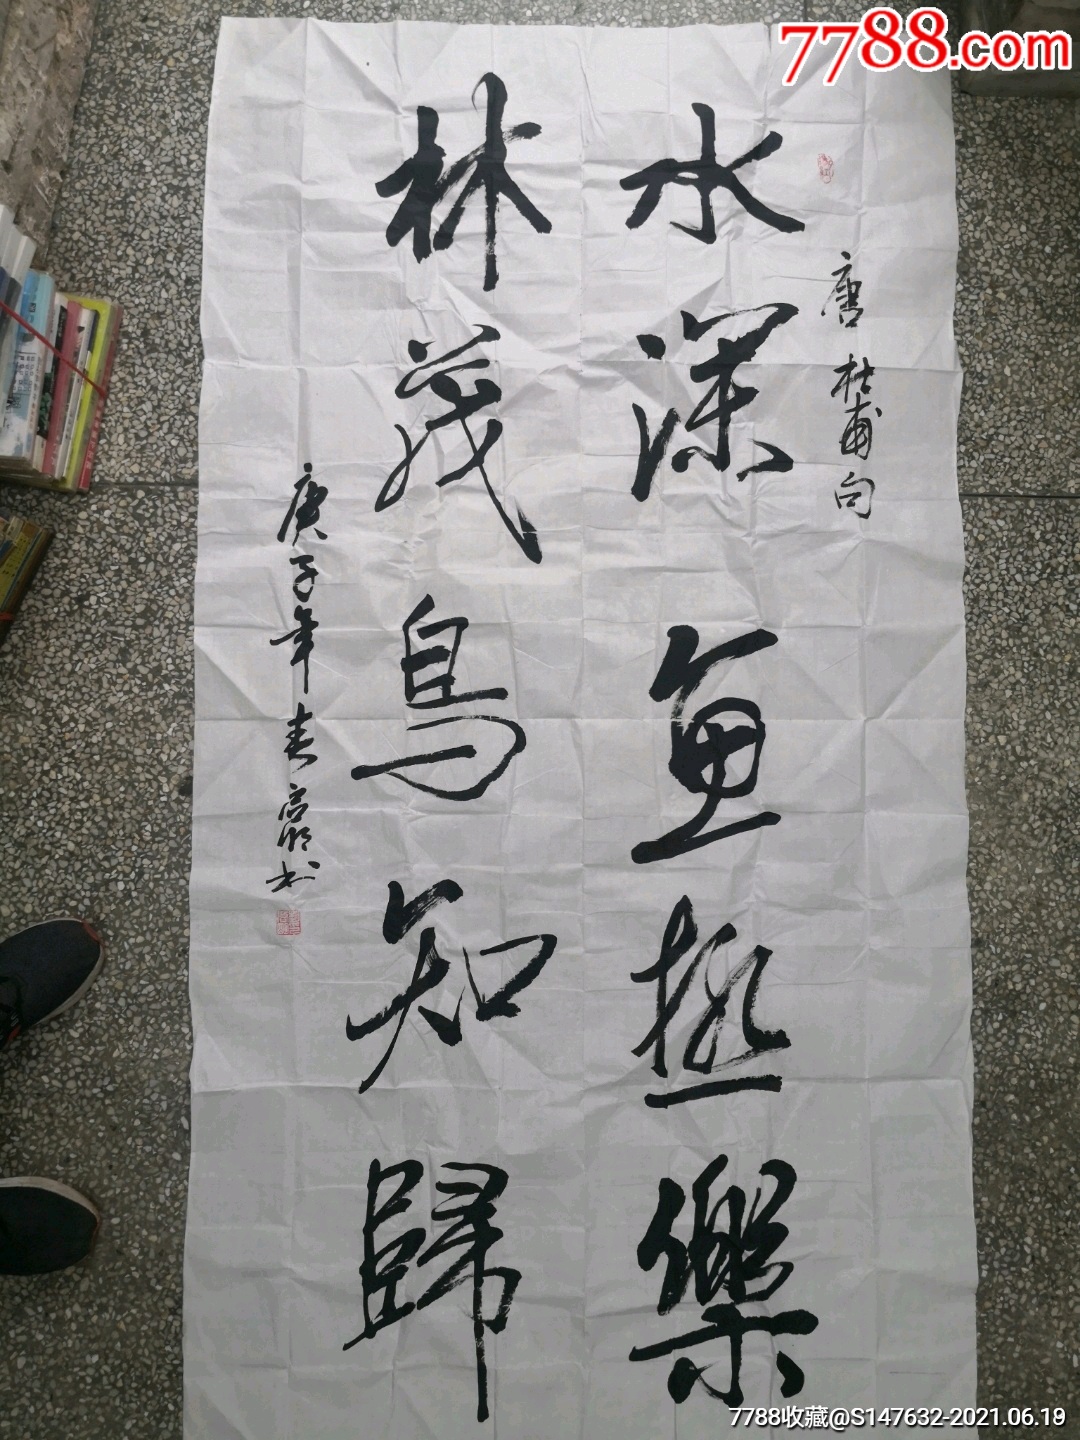 7788.com
唐 杜甫句
水深魚極樂
林茂鳥知歸
庚子年春
7788收藏@S147632-2021.06.19